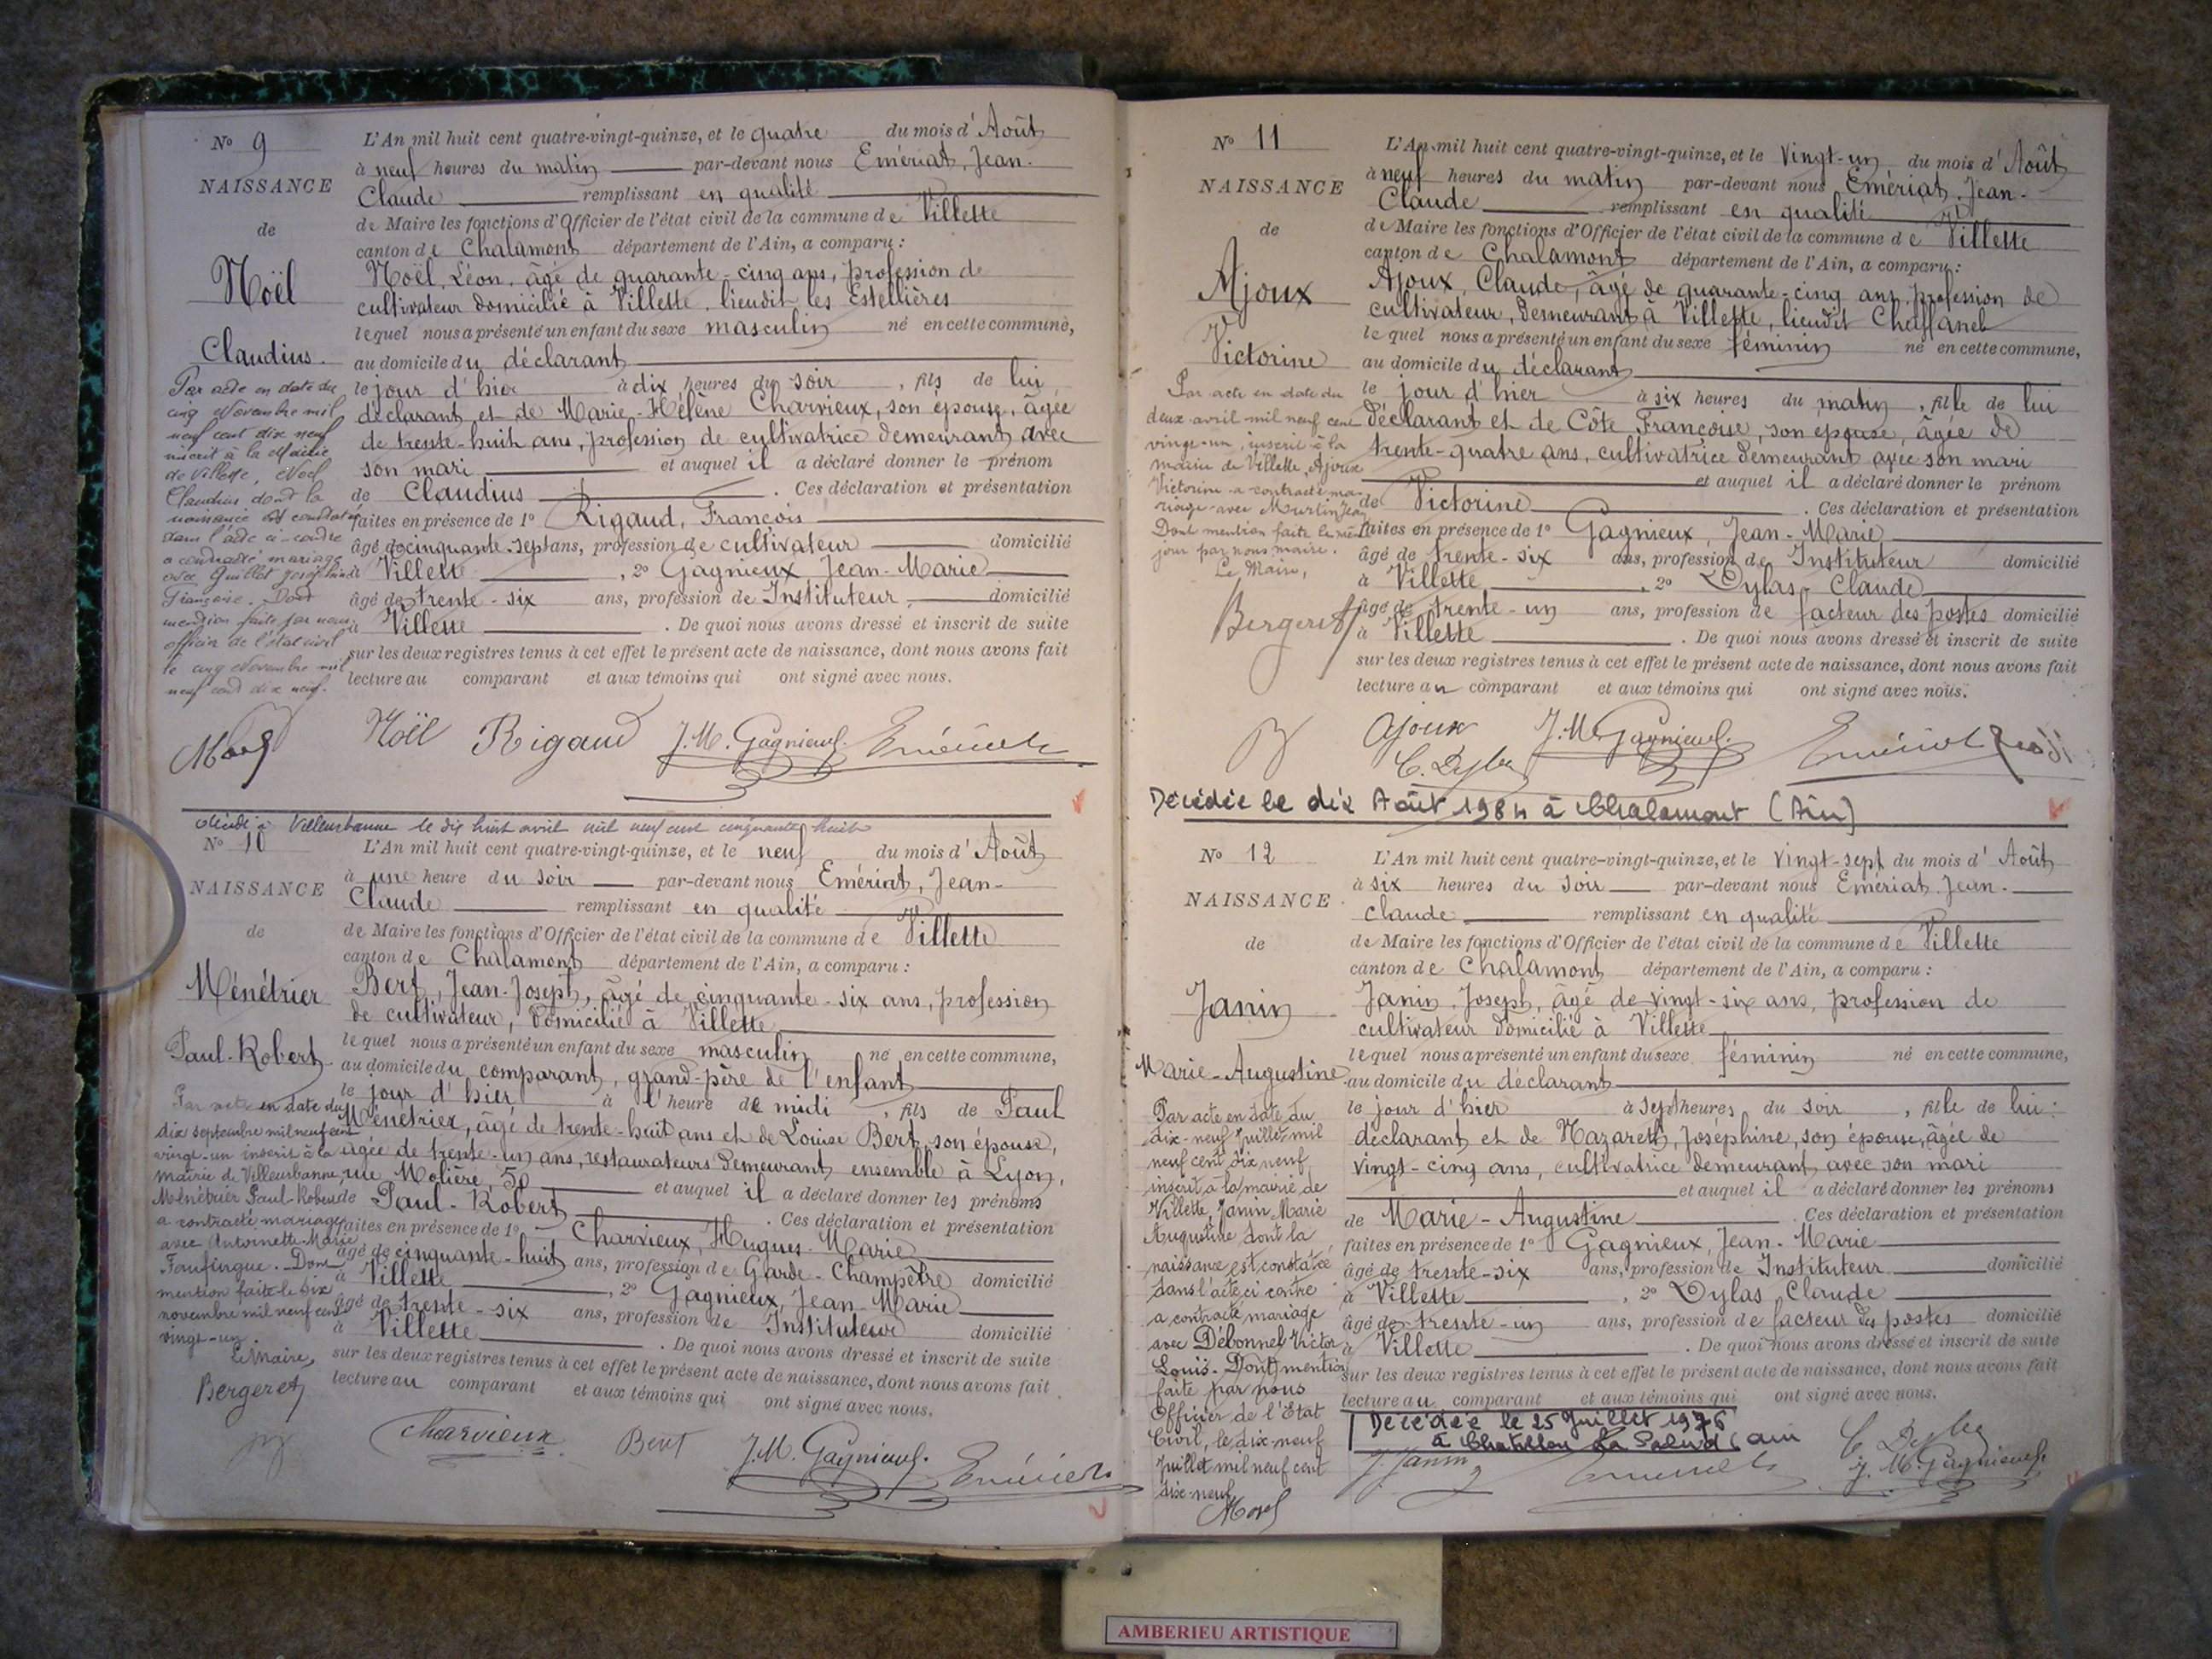 Nº 9
NAISSANCE
de
Noël
Claudius.
Par acte en date du
cinq Novembre mil
neuf cent dix neuf
inscrit à la Mairie
de Villette, Noël
Claudius dont la
naissance est constatée
dans l'acte ci-contre
a contracté mariage
avec Guillet Joséphine
Françoise. Dont
mention faite par nous
officier de l'état civil
le cinq Novembre mil
neuf cent dix neuf.
L'An mil huit cent quatre-vingt-quinze, et le quatre du mois d'Août
à neuf heures du matin par-devant nous Emériat, Jean-
Claude remplissant en qualité
de Maire les fonctions d'Officier de l'état civil de la commune de Villette
canton de Chalamont département de l'Ain, a comparu :
Noël, Léon, âgé de quarante-cinq ans, profession de
cultivateur domicilié à Villette, lieudit les Estellières
lequel nous a présenté un enfant du sexe masculin né en cette commune,
au domicile du déclarant
le jour d'hier à dix heures du soir, fils de lui
déclarant et de Marie-Hélène Charvieux, son épouse, âgée
de trente-huit ans, profession de cultivatrice demeurant avec
son mari et auquel il a déclaré donner le prénom
de Claudius. Ces déclaration et présentation
faites en présence de 1º Rigaud, François
âgé de cinquante-sept ans, profession de cultivateur domicilié
à Villette, 2º Gagnieux Jean-Marie
âgé de trente-six ans, profession de Instituteur, domicilié
à Villette. De quoi nous avons dressé et inscrit de suite
sur les deux registres tenus à cet effet le présent acte de naissance, dont nous avons fait
lecture au comparant et aux témoins qui ont signé avec nous.
Noël Rigaud J.M. Gagnieux. Emériat
décédé à Villeurbanne le dix huit avril mil neuf cent cinquante huit
Nº 10
NAISSANCE
de
Ménétrier
Paul-Robert
Par acte en date du
dix septembre mil neuf cent
vingt-un inscrit à la
mairie de Villeurbanne,
Ménétrier Paul-Robert
a contracté mariage
avec Antoinette-Marie
Dont
mention faite le dix
novembre mil neuf cent
vingt-un.
Le Maire,
Bergeret
L'An mil huit cent quatre-vingt-quinze, et le neuf du mois d'Août
à une heure du soir par-devant nous Emériat, Jean-
Claude remplissant en qualité
de Maire les fonctions d'Officier de l'état civil de la commune de Villette
canton de Chalamont département de l'Ain, a comparu :
Bert, Jean-Joseph, âgé de cinquante-six ans, profession
de cultivateur, domicilié à Villette
lequel nous a présenté un enfant du sexe masculin né en cette commune,
au domicile du comparant, grand-père de l'enfant
le jour d'hier à l'heure de midi, fils de Paul
Ménétrier, âgé de trente-huit ans et de Louise Bert, son épouse,
âgée de trente-un ans, restaurateurs demeurant ensemble à Lyon,
rue Molière, 50 et auquel il a déclaré donner les prénoms
de Paul-Robert. Ces déclaration et présentation
faites en présence de 1º Charvieux, Hugues-Marie
âgé de cinquante-huit ans, profession de Garde-Champêtre domicilié
à Villette, 2º Gagnieux, Jean-Marie
âgé de trente-six ans, profession de Instituteur domicilié
à Villette. De quoi nous avons dressé et inscrit de suite
sur les deux registres tenus à cet effet le présent acte de naissance, dont nous avons fait
lecture au comparant et aux témoins qui ont signé avec nous.
Charvieux Bert J.M. Gagnieux. Emériat
Nº 11
NAISSANCE
de
Ajoux
Victorine
Par acte en date du
deux avril mil neuf cent
vingt-un, inscrit à la
mairie de Villette, Ajoux
Victorine a contracté ma-
riage avec Murtin Jean
Dont mention faite le même
jour par nous maire.
Le Maire,
Bergeret
L'An mil huit cent quatre-vingt-quinze, et le Vingt-un du mois d'Août
à neuf heures du matin par-devant nous Emériat, Jean-
Claude remplissant en qualité
de Maire les fonctions d'Officier de l'état civil de la commune de Villette
canton de Chalamont département de l'Ain, a comparu :
Ajoux, Claude, âgé de quarante-cinq ans, profession de
cultivateur, demeurant à Villette, lieudit Chaffanel
lequel nous a présenté un enfant du sexe féminin né en cette commune,
au domicile du déclarant
le jour d'hier à six heures du matin, fille de lui
déclarant et de Côte Françoise, son épouse, âgée de
trente-quatre ans, cultivatrice demeurant avec son mari
et auquel il a déclaré donner le prénom
de Victorine. Ces déclaration et présentation
faites en présence de 1º Gagnieux, Jean-Marie
âgé de trente-six ans, profession de Instituteur domicilié
à Villette, 2º Dylas, Claude
âgé de trente-un ans, profession de facteur des postes domicilié
à Villette. De quoi nous avons dressé et inscrit de suite
sur les deux registres tenus à cet effet le présent acte de naissance, dont nous avons fait
lecture au comparant et aux témoins qui ont signé avec nous.
Ajoux J.M. Gagnieux. Emériat
C. Dylas
Décédée le dix Août 1984 à Chalamont (Ain)
Nº 12
NAISSANCE
de
Janin
Marie-Augustine
Par acte en date du
dix-neuf Juillet mil
neuf cent dix neuf
inscrit à la mairie de
Villette, Janin Marie
Augustine dont la
naissance est constatée
dans l'acte ci contre
a contracté mariage
avec Débonnel Victor
Louis. Dont mention
faite par nous
Officier de l'Etat
Civil, le dix-neuf
Juillet mil neuf cent
dix-neuf
L'An mil huit cent quatre-vingt-quinze, et le Vingt-sept du mois d'Août
à six heures du soir par-devant nous Emériat Jean-
Claude remplissant en qualité
de Maire les fonctions d'Officier de l'état civil de la commune de Villette
canton de Chalamont département de l'Ain, a comparu :
Janin Joseph, âgé de vingt-six ans, profession de
cultivateur domicilié à Villette
lequel nous a présenté un enfant du sexe féminin né en cette commune,
au domicile du déclarant
le jour d'hier à sept heures du soir, fille de lui:
déclarant et de Nazareth, Joséphine, son épouse, âgée de
vingt-cinq ans, cultivatrice demeurant avec son mari
et auquel il a déclaré donner les prénoms
de Marie-Augustine. Ces déclaration et présentation
faites en présence de 1º Gagnieux, Jean-Marie
âgé de trente-six ans, profession de Instituteur domicilié
à Villette, 2º Dylas, Claude
âgé de trente-un ans, profession de facteur des postes domicilié
à Villette. De quoi nous avons dressé et inscrit de suite
sur les deux registres tenus à cet effet le présent acte de naissance, dont nous avons fait
lecture au comparant et aux témoins qui ont signé avec nous.
Décédée le 25 Juillet 1976
à Chatillon La Palud (Ain
J. Janin Emériat C. Dylas
J.M. Gagnieux.
AMBERIEU ARTISTIQUE